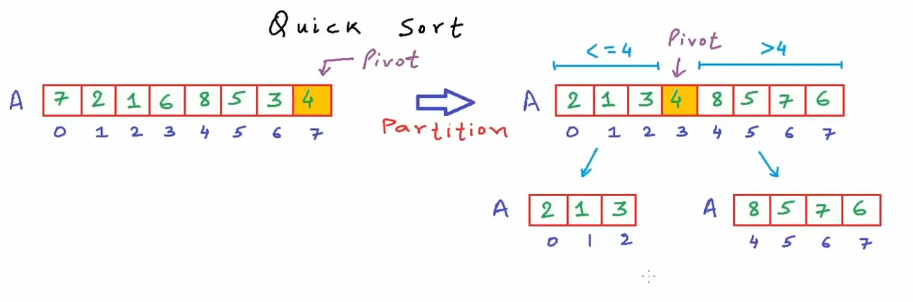 Quick Sort
Pivot
<=4 Pivot >4
A 7 2 1 6 8 5 3 4
0 1 2 3 4 5 6 7
Partition
A 2 1 3 4 8 5 7 6
0 1 2 3 4 5 6 7
A 2 1 3
0 1 2
A 8 5 7 6
4 5 6 7